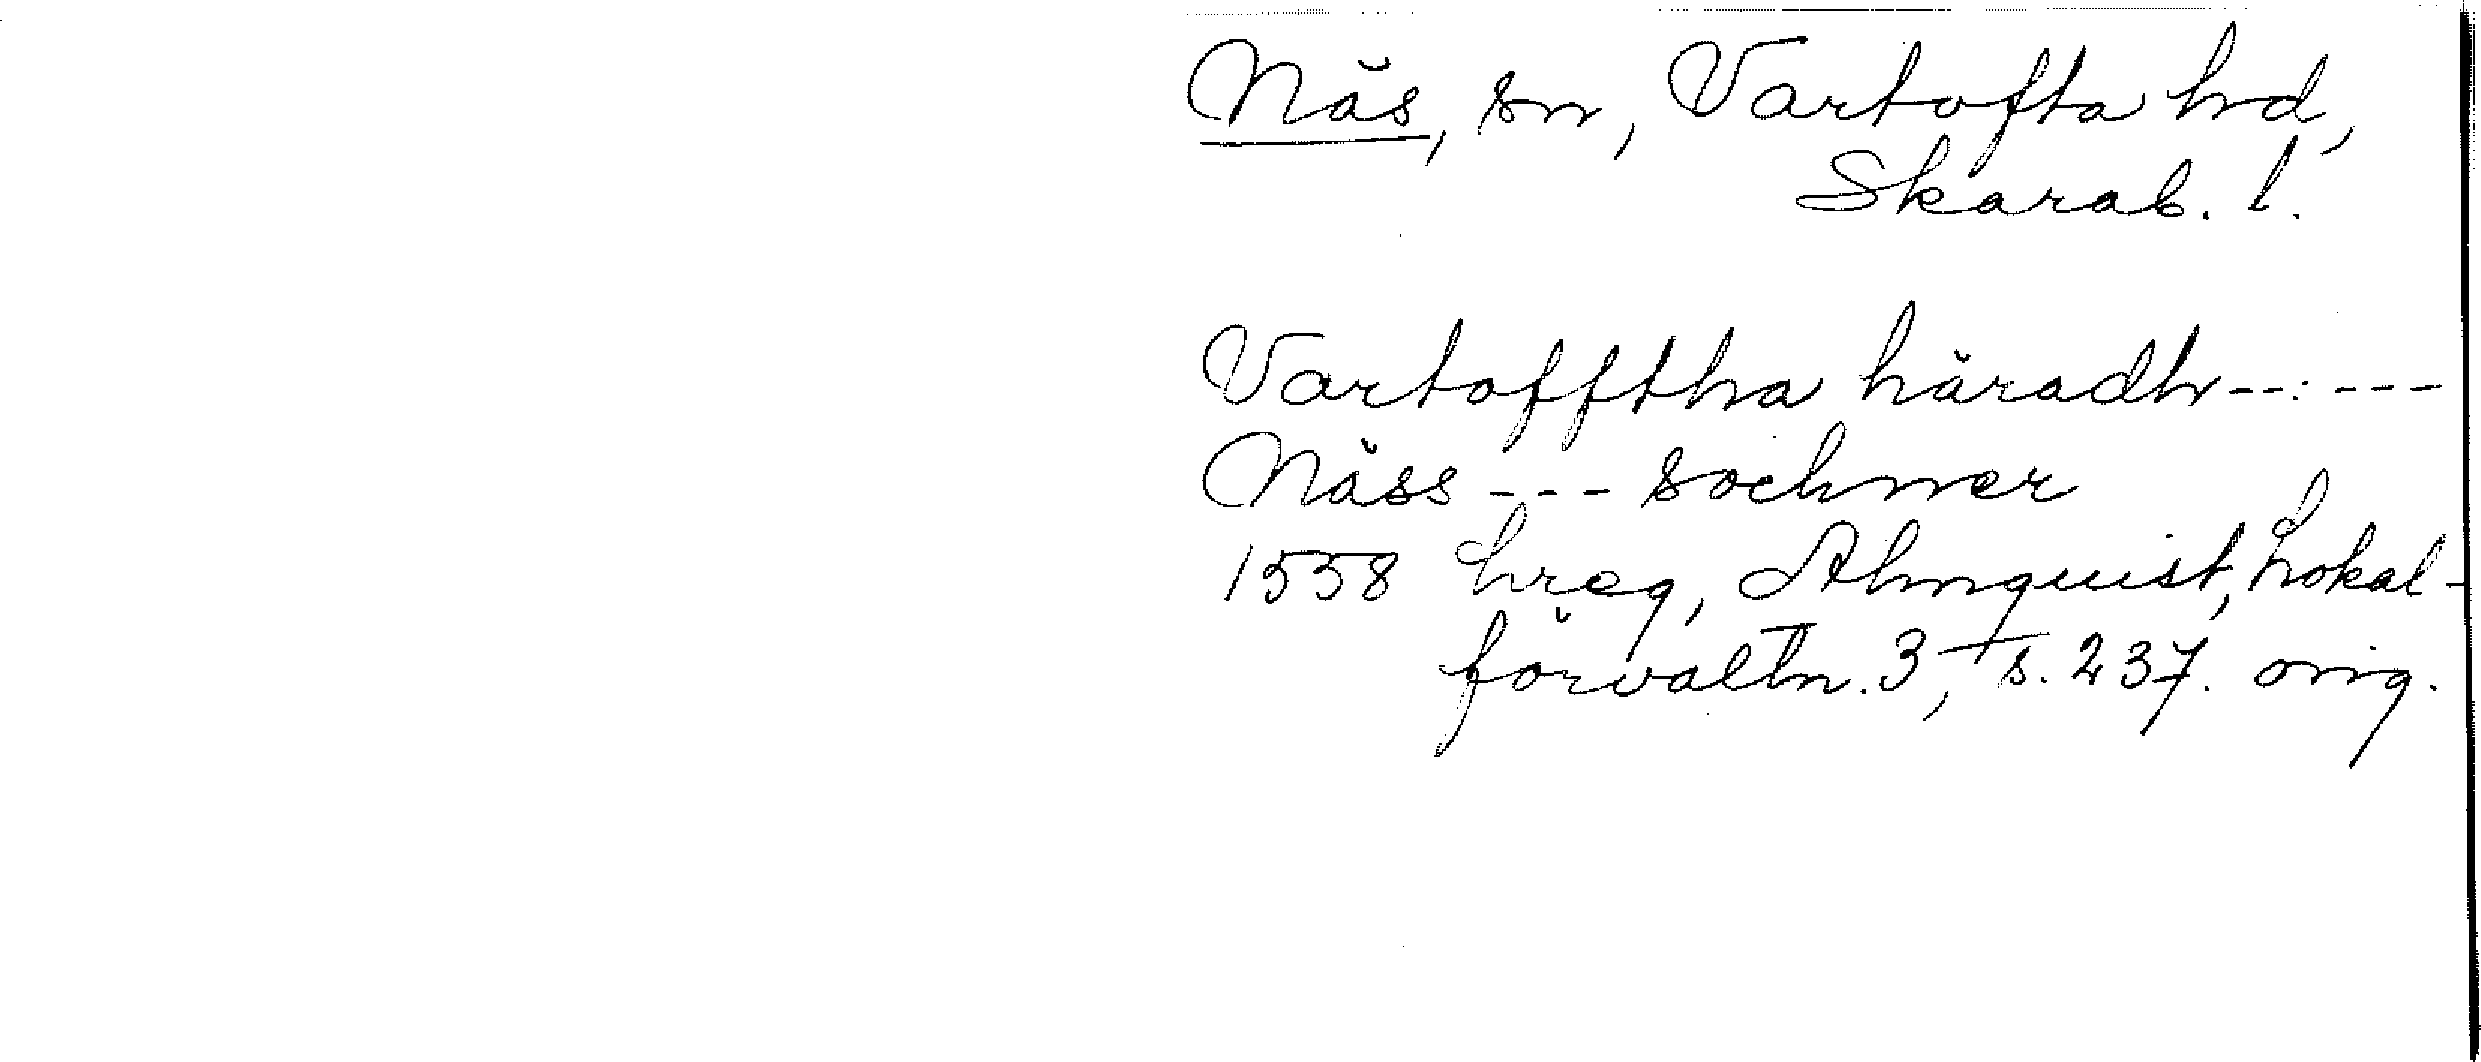 Näs, sn, Vartofta hd,
Skarab. l.
Vartofftha häradh --:---
Näss --- sochner
1558 hreg, Almquist, Lokal-
förvaltn. 3, s. 237. orig.